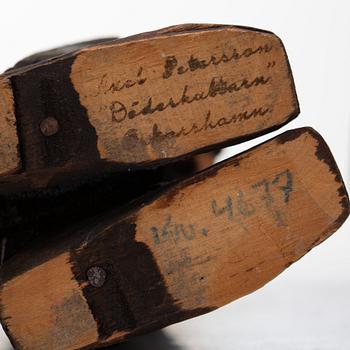 Axel Petersson
"Döderhultarn"
Oskarshamn.
No. 4677